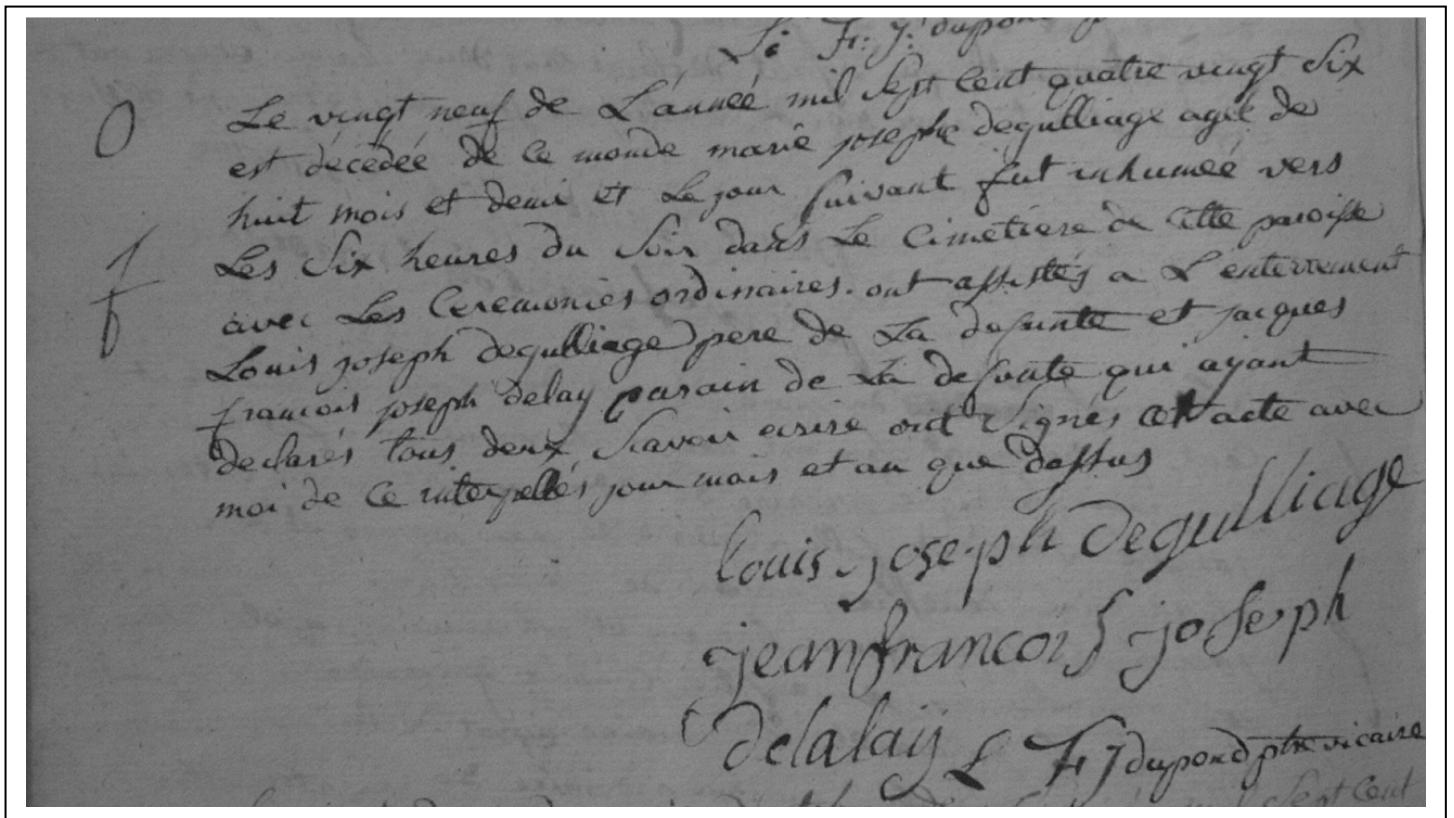 Fr: J: dupond
O
Le vingt neuf de L'année mil sept cent quatre vingt six
est décédée de ce monde marie josephe degulliage agée de
huit mois et demi et Le jour suivant fut inhumée vers
Les six heures du soir dans Le Cimetiere de cette paroisse
f
avec Les Ceremonies ordinaires. ont assistés a L'enterrement
Louis joseph degulliage pere de La defunte et jacques
francois joseph delay parain de La defunte qui ayant
declarés tous deux scavoir ecrire ont signés cet acte avec
moi de ce interpellés jour mois et an que dessus
louis joseph degulliage
jeanfrancois joseph
delalaij L F J dupond ptre vicaire
sept Cent